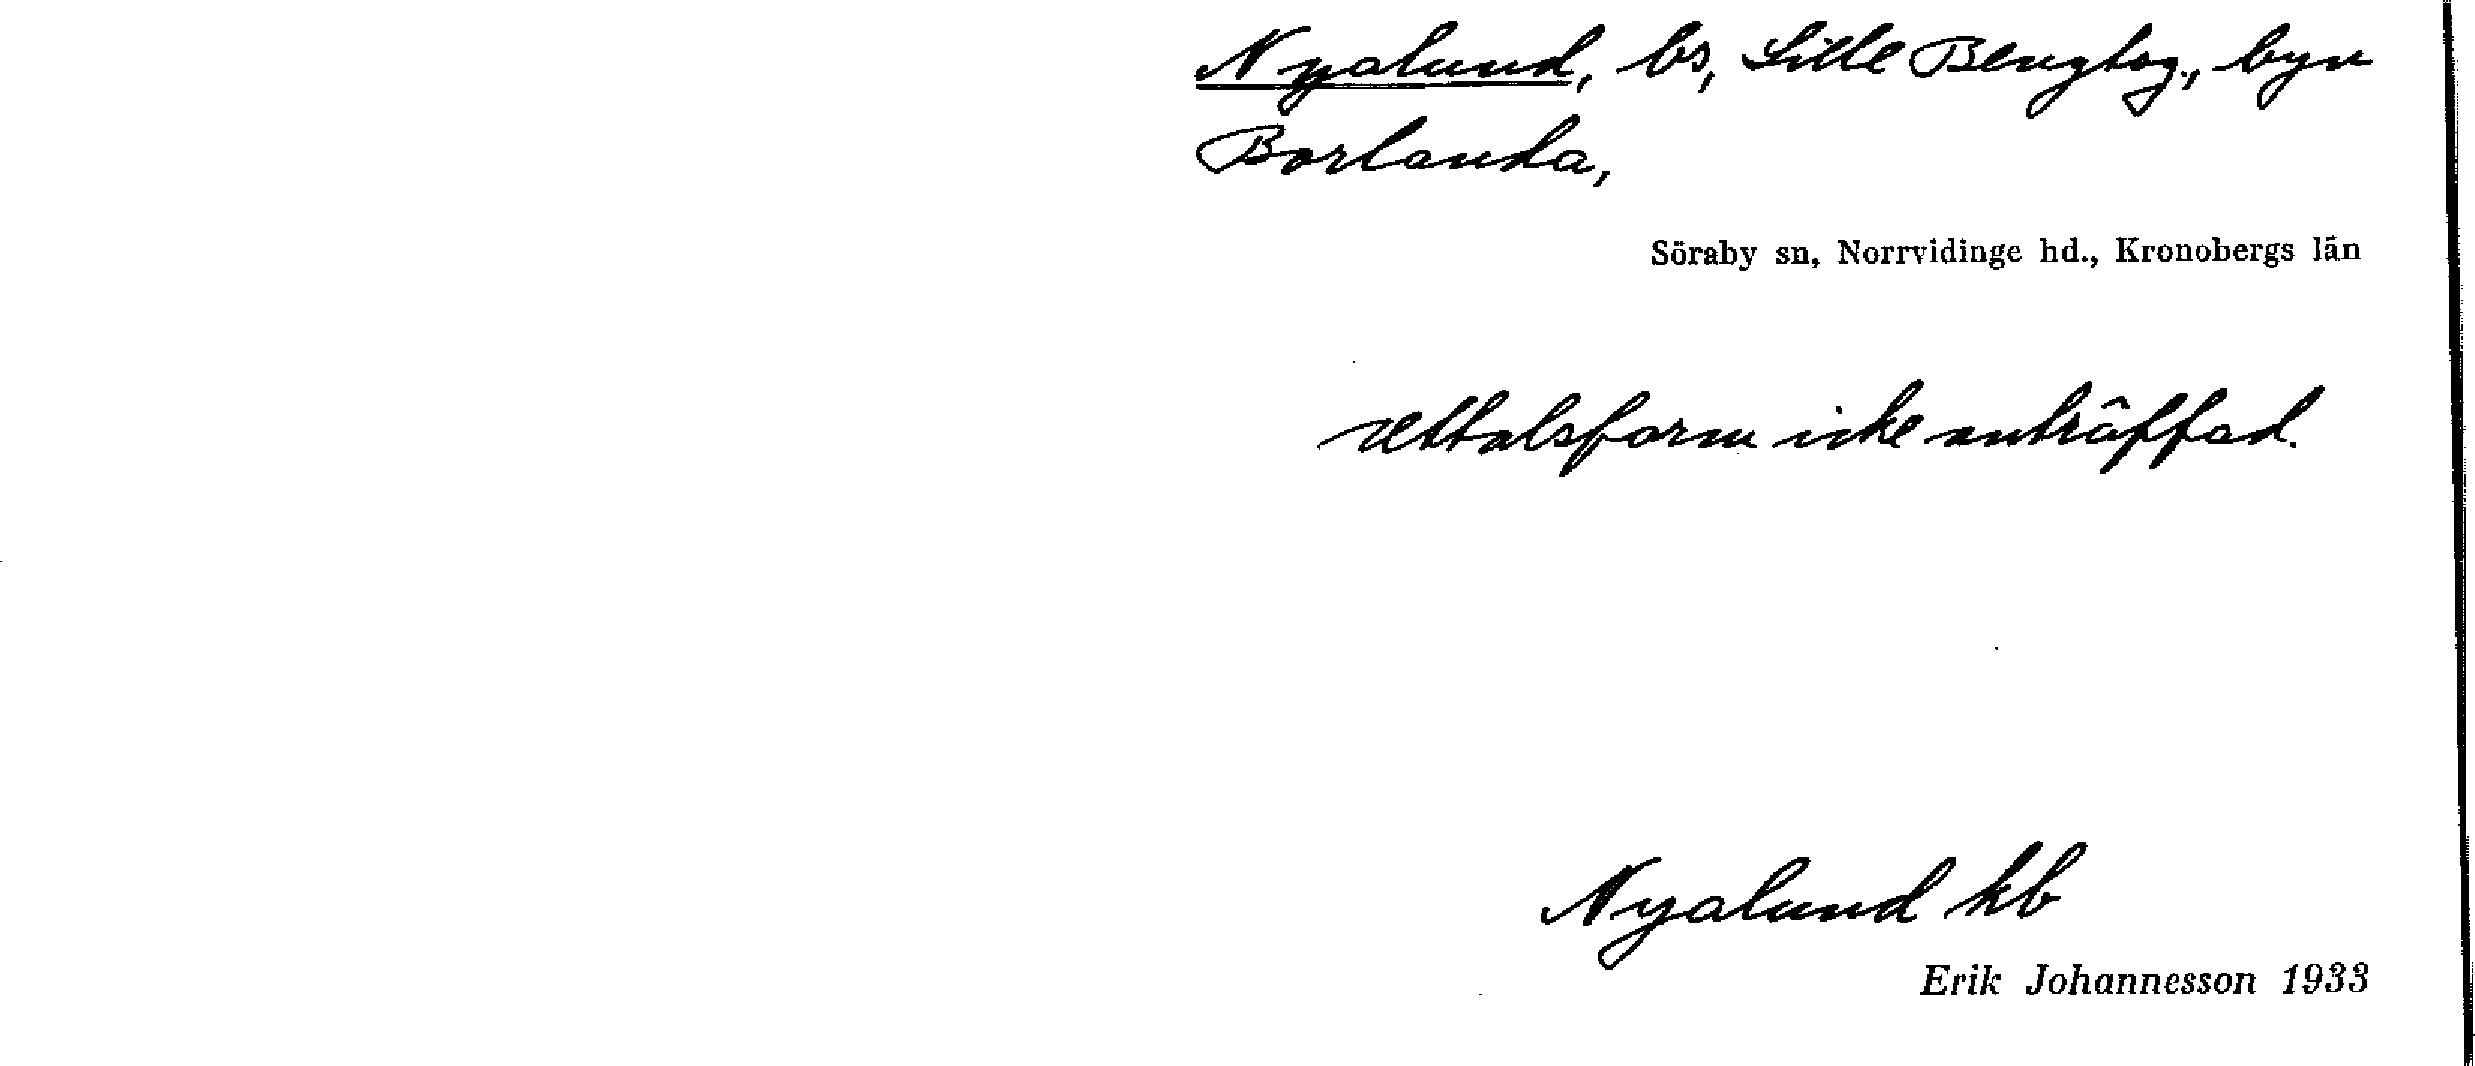 Nyalund, bs, Lille Bengtsg., byn
Borlanda,
Söraby sn, Norrvidinge hd., Kronobergs län
Uttalsform icke anträffad.
Nyalund kb
Erik Johannesson 1933